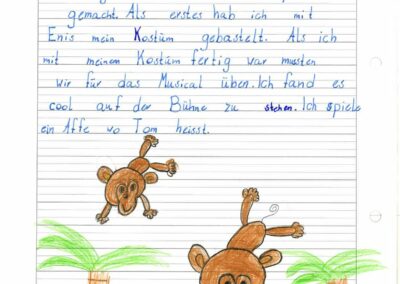 gemacht. Als erstes hab ich mit
Enis mein Kostüm gebastelt. Als ich
mit meinem Kostüm fertig war mussten
wir für das Musical üben. Ich fand es
cool auf der Bühne zu stehen. Ich spiele
ein Affe wo Tom heisst.